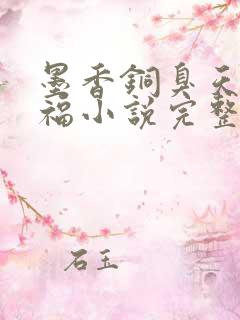 墨香銅臭天
福小說完整
石玉